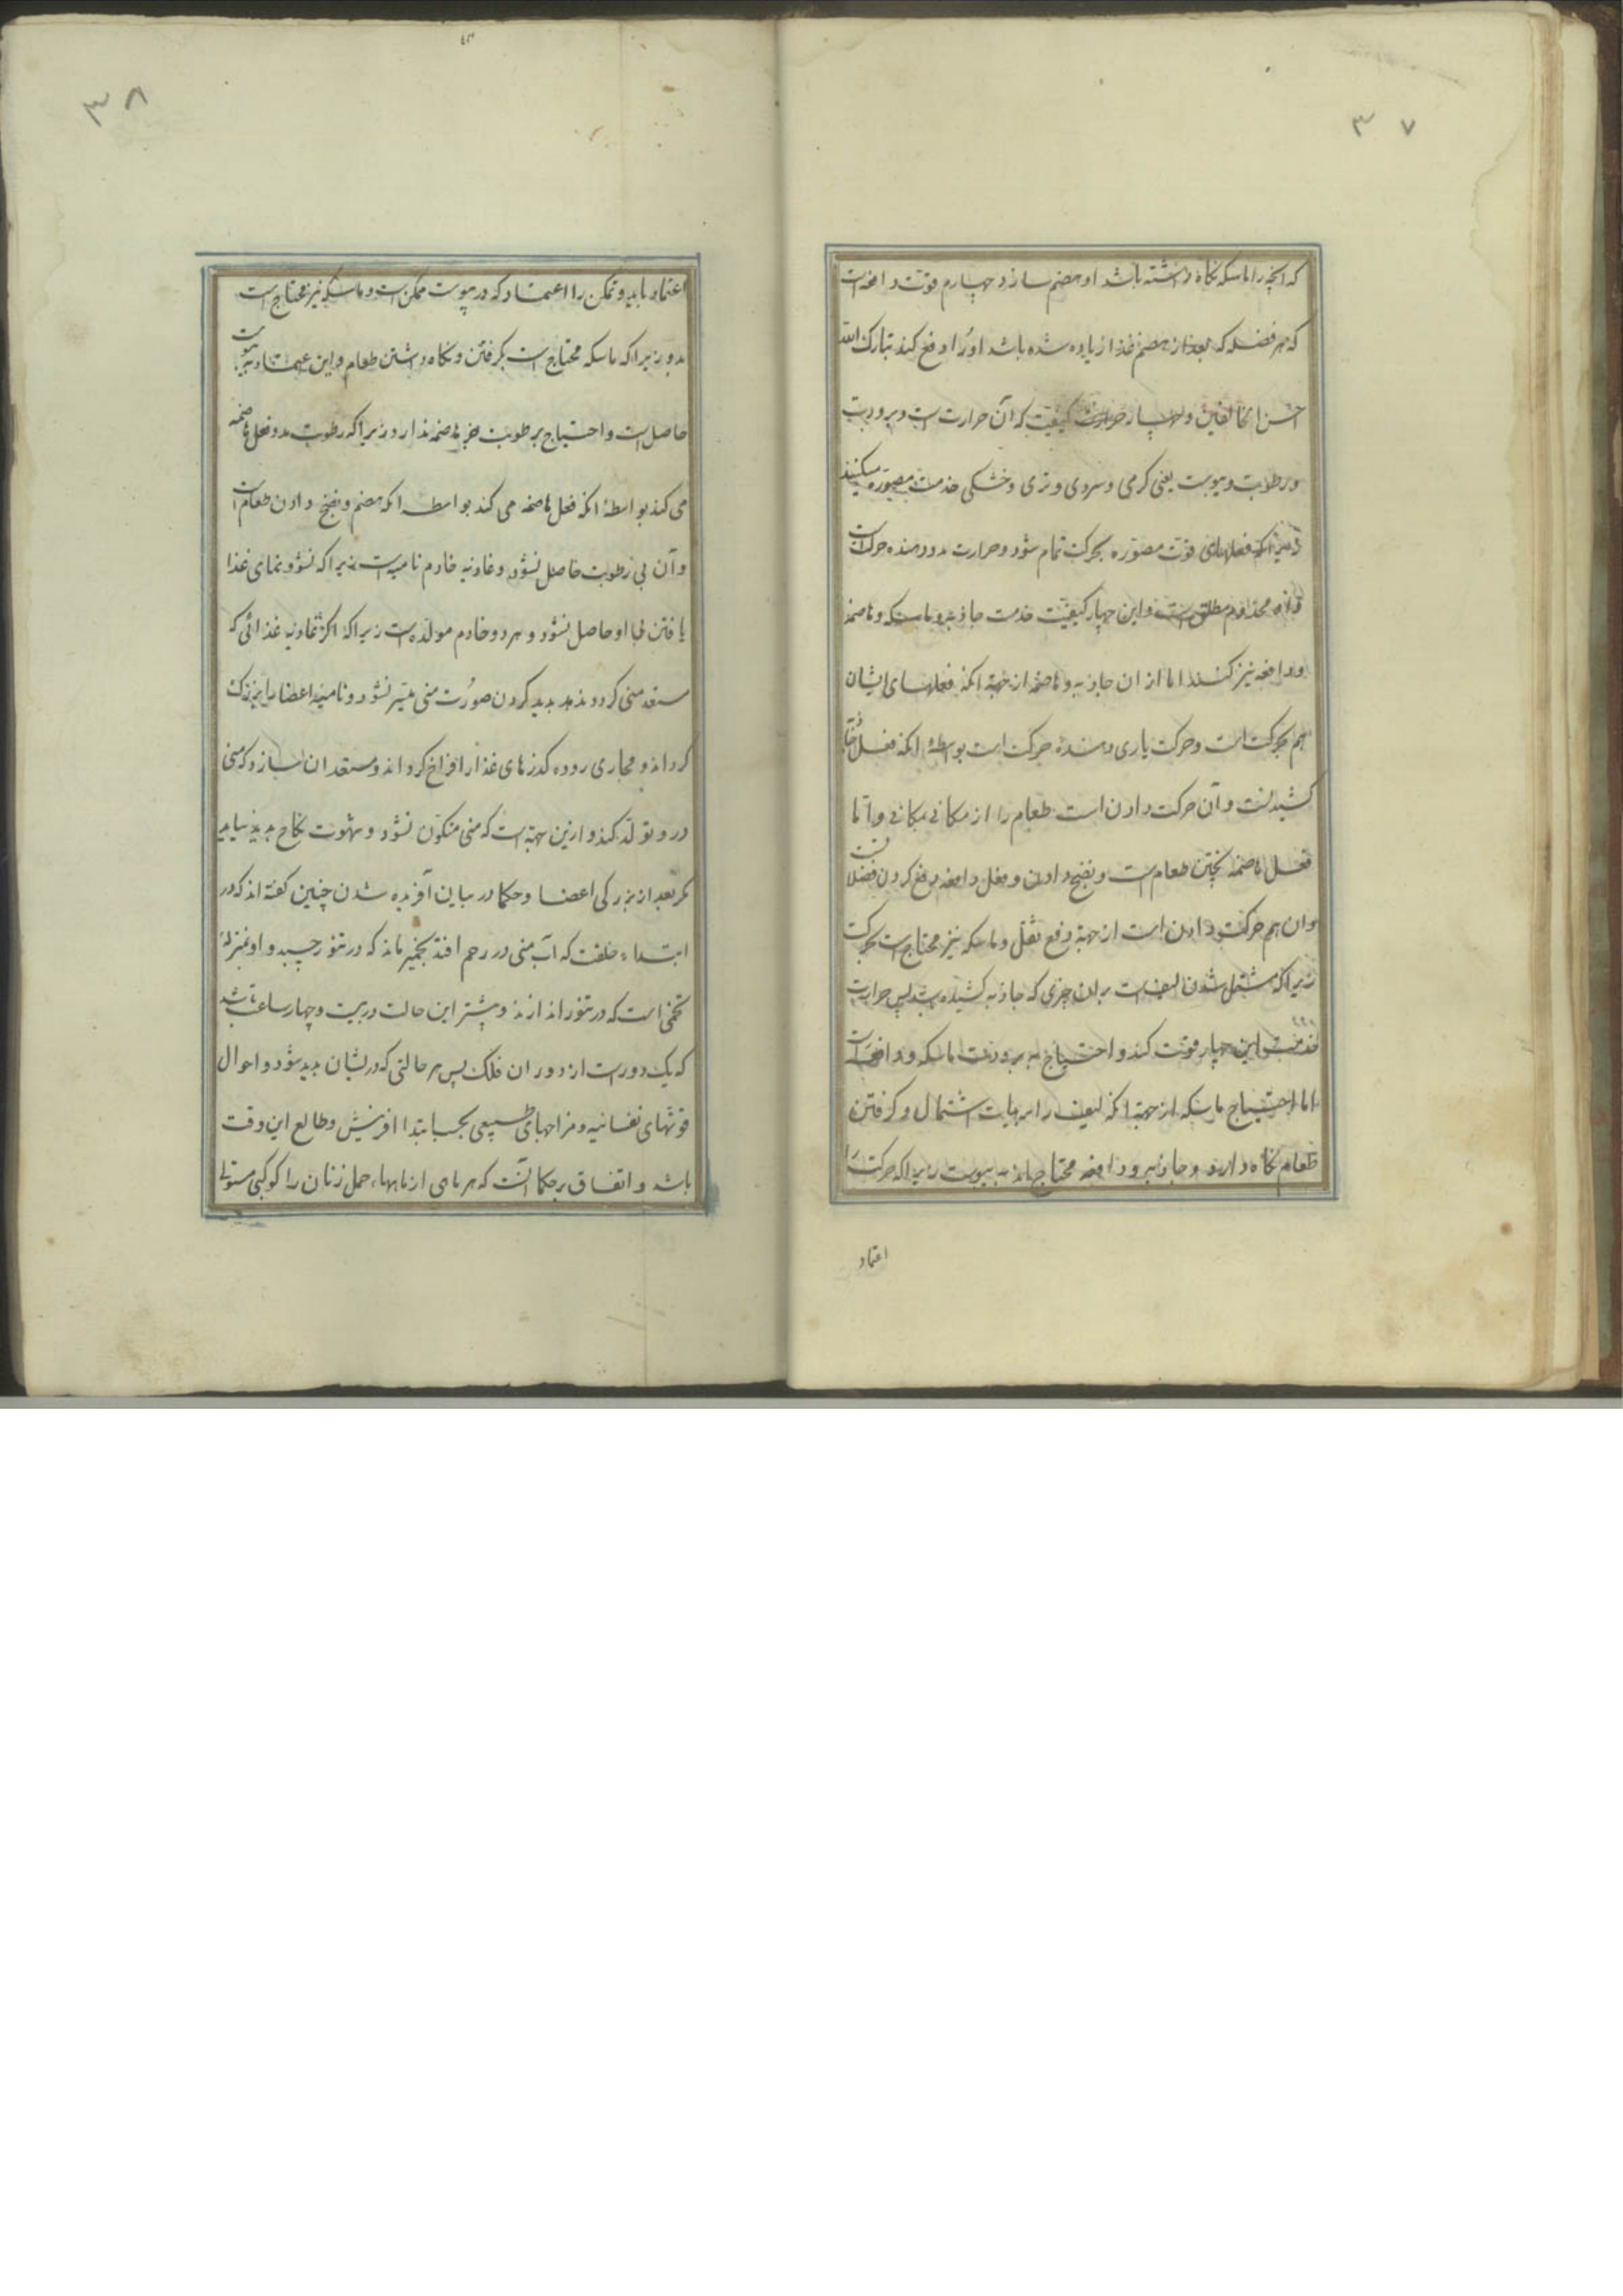 ۳۷
که انچه را ماسکه نکاه داشته باشد او هضم سازد چهارم قوت دافعه است
که هر فضله که بعد از هضم غذا زیاده شده باشد او را دفع کند تبارک الله
احسن الخالقین و چهار کیفیت که آن حرارت است و برودت
و رطوبت و یبوست یعنی کرمی و سردی و تری و خشکی خدمت مصوره میکنند
زیرا که فعلهای قوت مصوره بحرکت تمام شود و حرارت مدد دهنده حرکات است
مخدوم مطلق است و این چهار کیفیت خدمت جاذبه و ماسکه و هاضمه
و دافعه نیز کنند اما از ان جاذبه و هاضمه از جهة انکه فعلهای ایشان
هم بحرکت است و حرکت یاری دهنده حرکت است بواسطهٔ انکه فعل جاذبه
کشیدنست و آن حرکت دادن است طعام را از مکانی بمکانی و اما
فعل هاضمه پختن طعام است و نضج دادن و فعل دافعه دفع کردن فضلات
وان هم حرکت دادن است از جهة دفع ثقل و ماسکه نیز محتاج است بحرکت
زیرا که مشتمل شدن لیف است بران چیزی که جاذبه کشیده باشد پس حرارت
خدمت این چهار قوت کند و احتیاج به برودت ماسکه و دافعه راست
اما احتیاج ماسکه از جهة انکه لیف را بر هیات اشتمال و کرفتن
طعام نکاه دارد و جاذبه و دافعه محتاج اند به یبوست زیرا که حرکت را
اعتماد
۳۸
اعتماد باید و تمکن را اعتماد که در یبوست ممکن است و ماسکه نیز محتاج است
بدو زیرا که ماسکه محتاج است بکرفتن و نکاه داشتن طعام و این اعتماد به یبوست
حاصل است و احتیاج برطوبت جز هاضمه ندارد زیرا که رطوبت مدد فعل هاضمه
می کند بواسطهٔ انکه فعل هاضمه می کند بواسطه انکه هضم و نضج دادن طعام است
و آن بی رطوبت حاصل نشود و غاذیه خادم نامیه است زیرا که نشو و نمای غذا
یافتن بی او حاصل نشود و هر دو خادم مولده است زیرا که اکر غاذیه غذائی که
مستعد منی کردد ندهد پدید کردن صورت منی میسر نشود و نامیه اعضا را بزرک
کرداند و مجاری روده کذرهای غذا را فراخ کرداند و مستعد ان سازد که منی
درو تولد کند و ازین جهة است که منی متکون نشود و شهوت نکاح پدید نیاید
مکر بعد از بزرکی اعضا و حکما در بیان آفریده شدن چنین کفته اند که در
ابتداء خلقت که آب منی در رحم افتد بخمیر ماند که در تنور چسبد و او بمنزلهٔ
تخمی است که در تنور اندازند و پیشتر این حالت در بیست و چهار ساعت باشد
که یک دورست از دوران فلک پس هر حالتی که در یشان پدید شود و احوال
قوتهای نفسانیه و مزاجهای طبیعی بحسب ابتدا افرینش و طالع این وقت
باشد و اتفاق برحکما آنست که هر ماهی از ماهها، حمل زنان را کوکبی مستولی